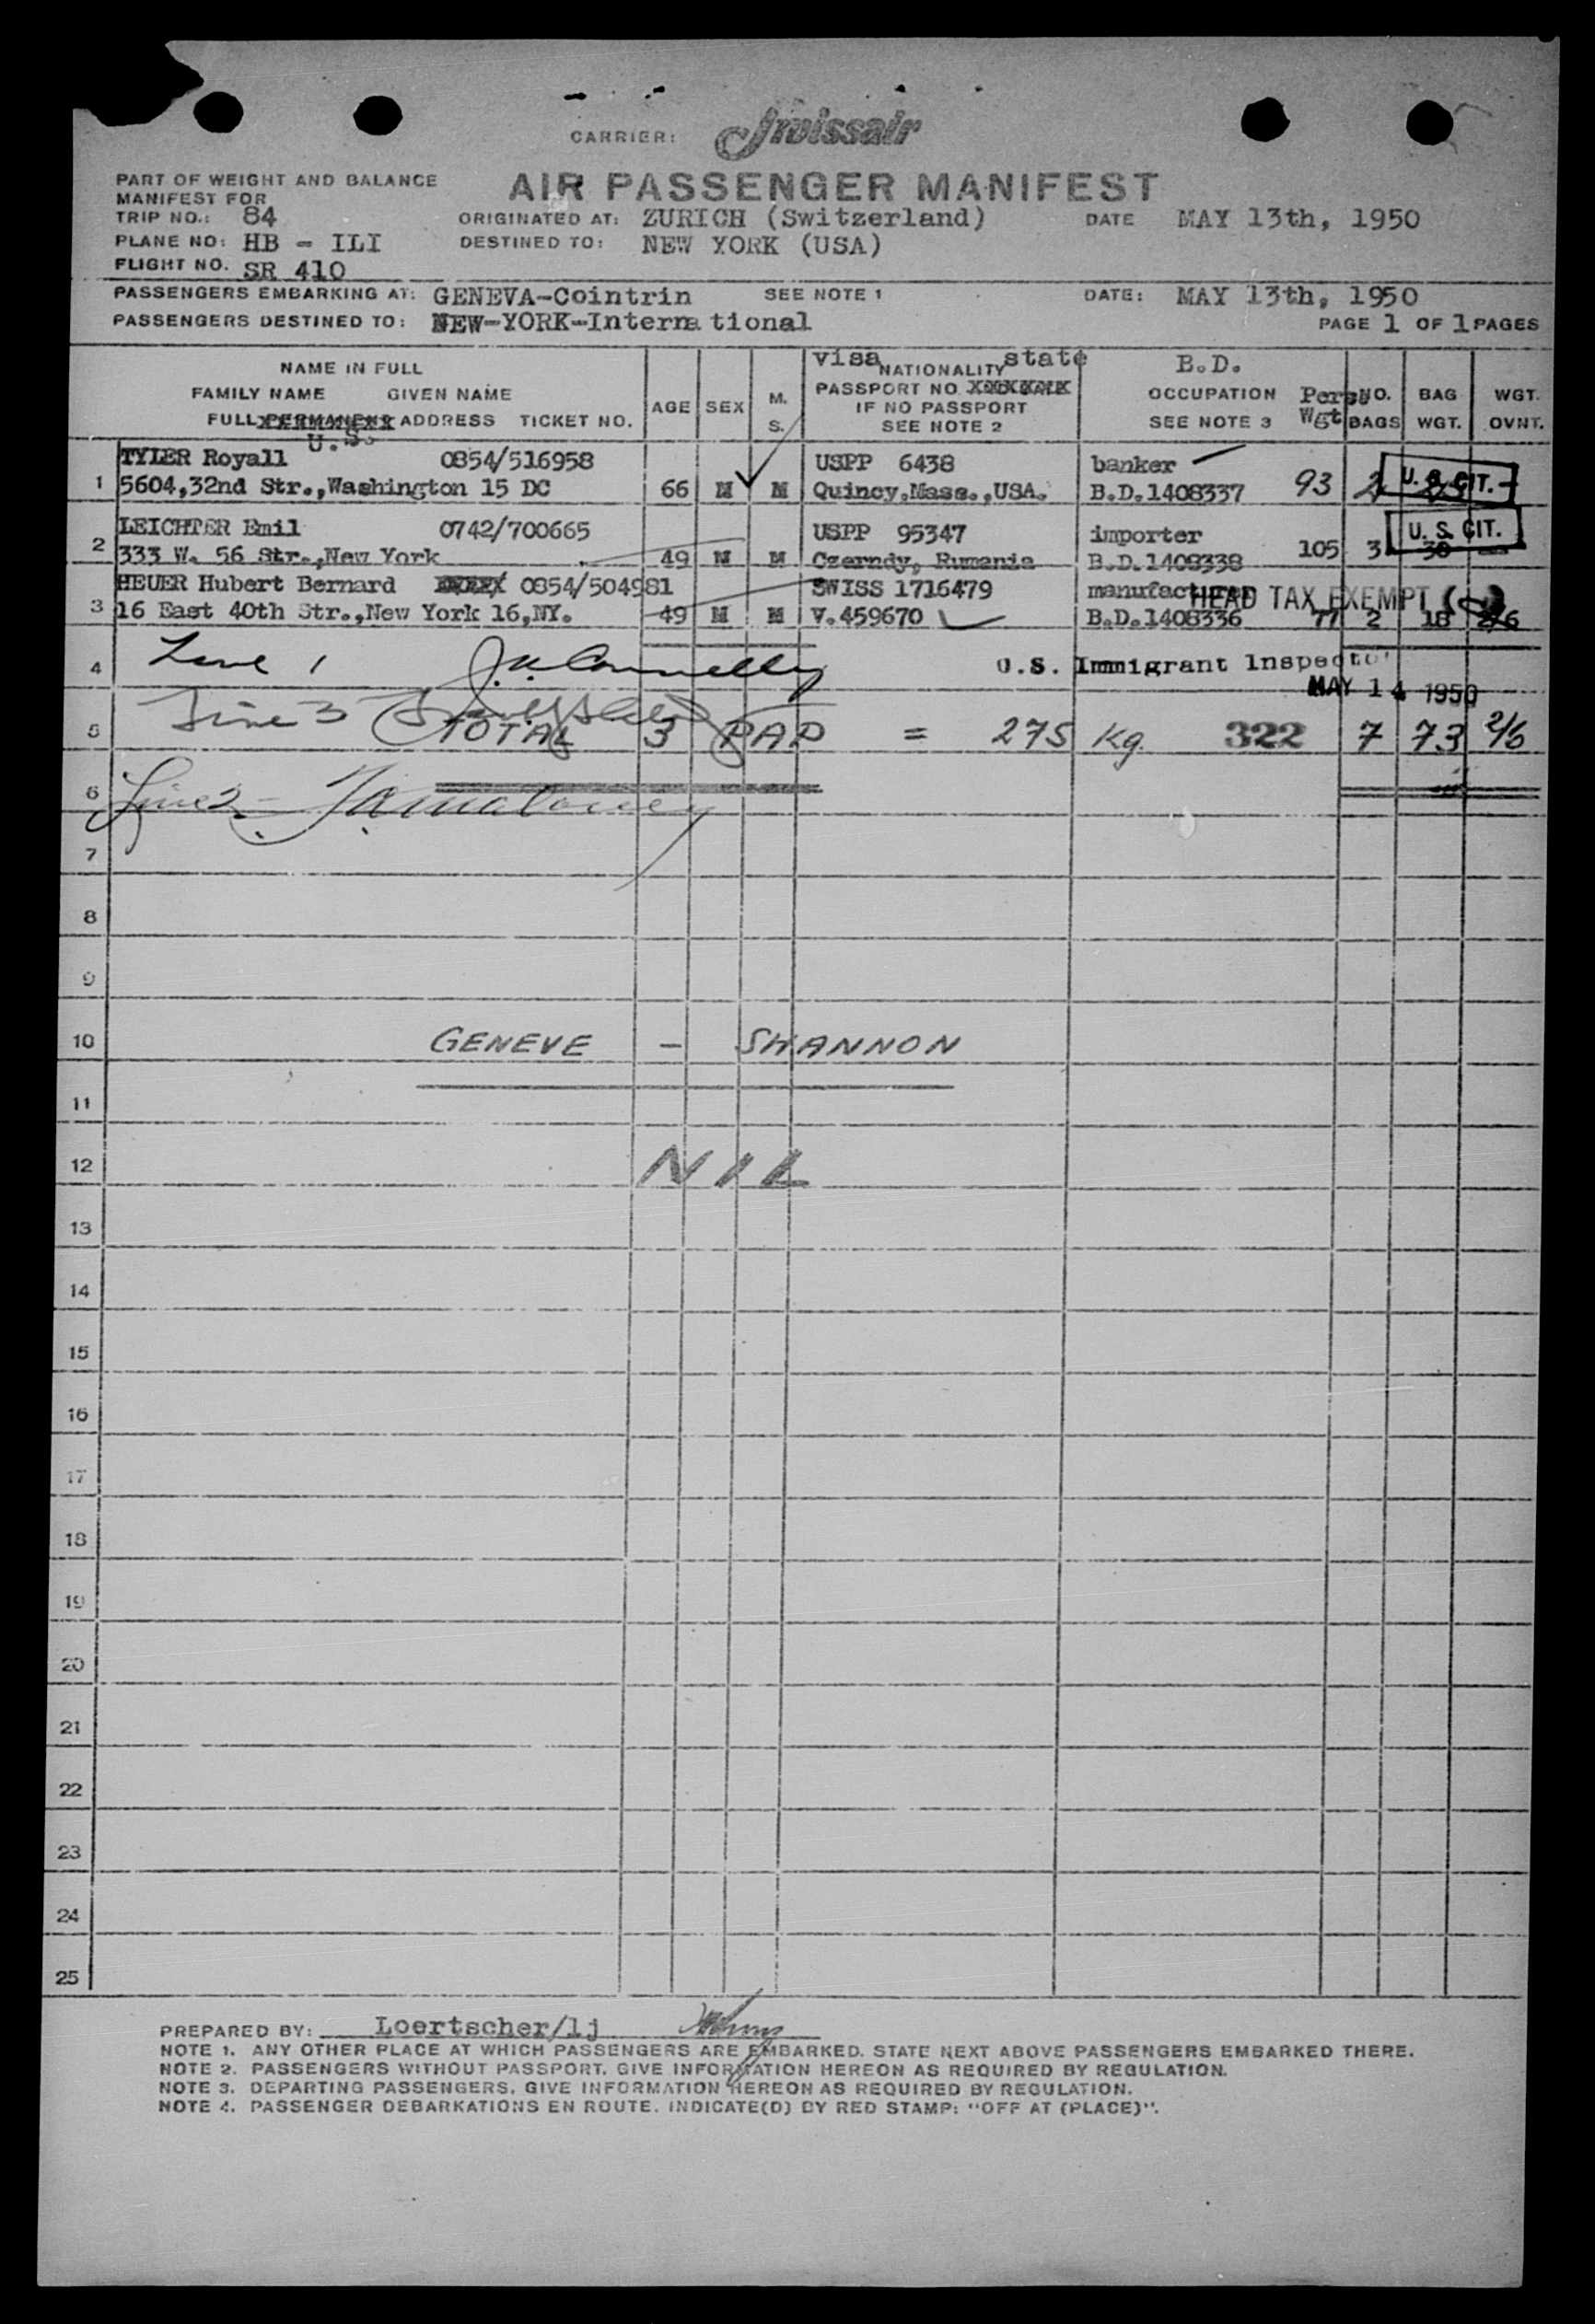 CARRIER: Swissair
PART OF WEIGHT AND BALANCE
MANIFEST FOR
AIR PASSENGER MANIFEST
TRIP NO.: 84 ORIGINATED AT: ZURICH (Switzerland) DATE MAY 13th, 1950
PLANE NO: HB - ILI DESTINED TO: NEW YORK (USA)
FLIGHT NO. SR 410
PASSENGERS EMBARKING AT: GENEVA-Cointrin SEE NOTE 1 DATE: MAY 13th, 1950
PASSENGERS DESTINED TO: NEW-YORK-International PAGE 1 OF 1 PAGES
NAME IN FULL visa NATIONALITY state B.D.
FAMILY NAME GIVEN NAME AGE SEX M. PASSPORT NO. XXXXXXX OCCUPATION Pers. NO. BAG WGT.
FULL PERMANENT ADDRESS TICKET NO. S. IF NO PASSPORT SEE NOTE 2 SEE NOTE 3 Wgt BAGS WGT. OVNT.
U.S.
TYLER Royall 0854/516958 USPP 6438 banker
1 5604,32nd Str.,Washington 15 DC 66 M M Quincy,Mass.,USA. B.D.1408337 93 2 U. S. CIT. -
LEICHTER Emil 0742/700665 USPP 95347 importer U. S. CIT.
2 333 W. 56 Str.,New York 49 M M Czerndy, Rumania B.D.1408338 105 3 30
HEUER Hubert Bernard 0854/504981 SWISS 1716479 manufacturer HEAD TAX EXEMPT
3 16 East 40th Str.,New York 16,NY. 49 M M V.459670 B.D.1408336 77 2 18 2/6
4 Line 1 J. Connelly U.S. Immigrant Inspector
MAY 14 1950
5 Line 3 TOTAL 3 PAP = 275 Kg. 322 7 73 2/6
6 Line 2 -
7
8
9
10 GENEVE - SHANNON
11
12 NIL
13
14
15
16
17
18
19
20
21
22
23
24
25
PREPARED BY: Loertscher/lj
NOTE 1. ANY OTHER PLACE AT WHICH PASSENGERS ARE EMBARKED. STATE NEXT ABOVE PASSENGERS EMBARKED THERE.
NOTE 2. PASSENGERS WITHOUT PASSPORT. GIVE INFORMATION HEREON AS REQUIRED BY REGULATION.
NOTE 3. DEPARTING PASSENGERS. GIVE INFORMATION HEREON AS REQUIRED BY REGULATION.
NOTE 4. PASSENGER DEBARKATIONS EN ROUTE. INDICATE(D) BY RED STAMP: "OFF AT (PLACE)".